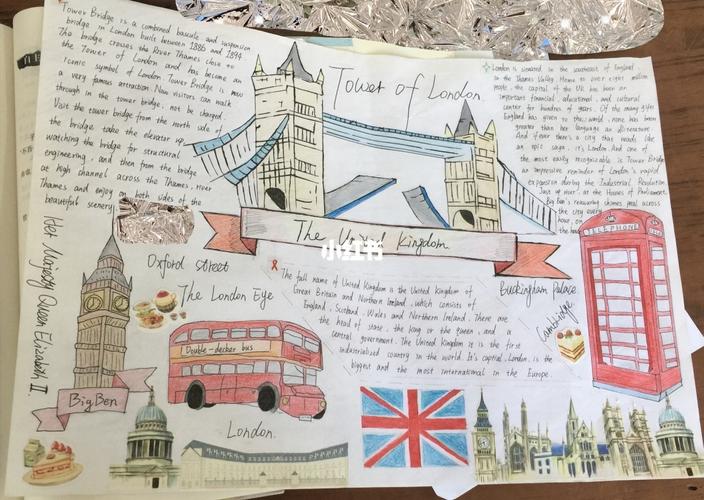 Tower Bridge is a combined bascule and suspension
bridge in London built between 1886 and 1894
The bridge crosses the River Thames close to
the Tower of London and has become an
iconic symbol of London Tower Bridge is now
a very famous attraction. Now visitors can walk
through in the tower bridge, not be charged.
Visit the tower bridge from the north side of
the bridge take the elevator up,
watching the bridge for structural
engineering, and then from the bridge
at high channel across the Thames, river
Thames and enjoy on both sides of the
beautiful scenery
Tower of London
London is situated in the southeast of England
in the Thames Valley. Home to over eight million
people, the capital of the UK has been an
important financial, educational, and cultural
center for hundres of years. Of the many gifts
England has given to the world, none has been
greater than her language and literature
And if ever there's a city that reads like
an epic saga, it's London. And one of
the most easily recognizable is Tower Bridge
an impressive reminder of London's rapid
expansion during the Industrial Revolution.
Just up river, at the Houses of Parliament,
Big Ben's reassuring chimes peal across
the city every
hour, on
the hour
The United Kingdom
小红书
TELEPHONE
Her Majesty Queen Elizabeth II.
Oxford street
The London Eye
The full name of United Kingdom is the United Kingdom of
Great Britain and Northern Ireland, which consists of
England, Scotland, Wales and Northern Ireland. There are
the head of state, the king or the queen, and a
central government. The United Kingdom is the first
industrialized country in the world. It's capital, London, is the
biggest and the most international in the Europe.
Buckingham Palace
Cambridge
Double-decker bus
BigBen
London.